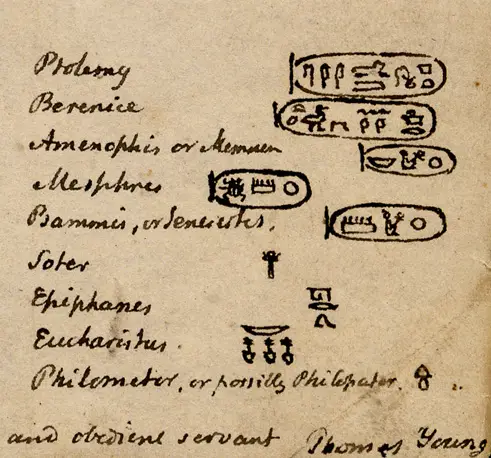 Ptolemy
Berenice
Amenophis or Memnon
Mesphres
, or
Soter
Epiphanes
Eucharistus.
Philometor, or possibly Philopator.
and obedient servant Thomas Young